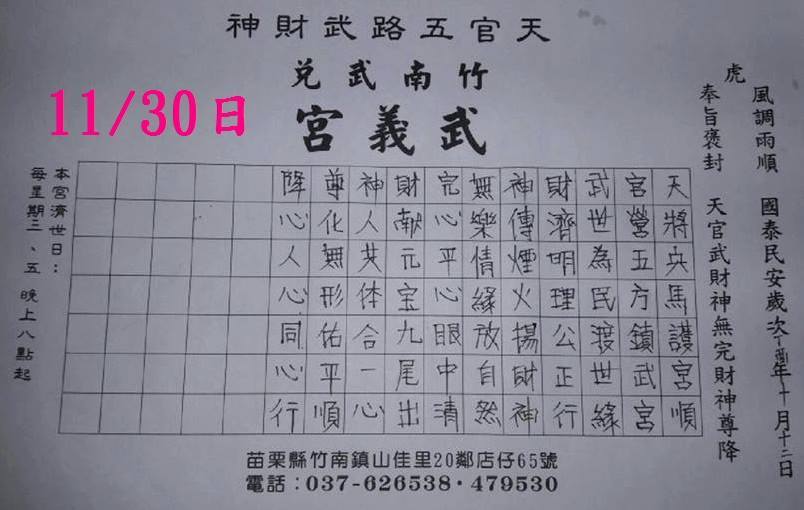 天官五路武財神
竹南武兌
武義宮
11/30日
風調雨順 國泰民安歲次丁酉年十月十二日
虎
奉旨褒封 天官武財神無完財神尊降
天將央馬護宮順
官營五方鎮武宮
武世為民渡世緣
財濟明理公正行
神傳煙火揚財神
無樂情緣放自然
完心平心眼中清
財献元宝九尾出
神人共体合一心
尊化無形佑平順
降心人心同心行
本宮濟世日：
每星期三、五 晚上八點起
苗栗縣竹南鎮山佳里20鄰店仔65號
電話：037-626538・479530